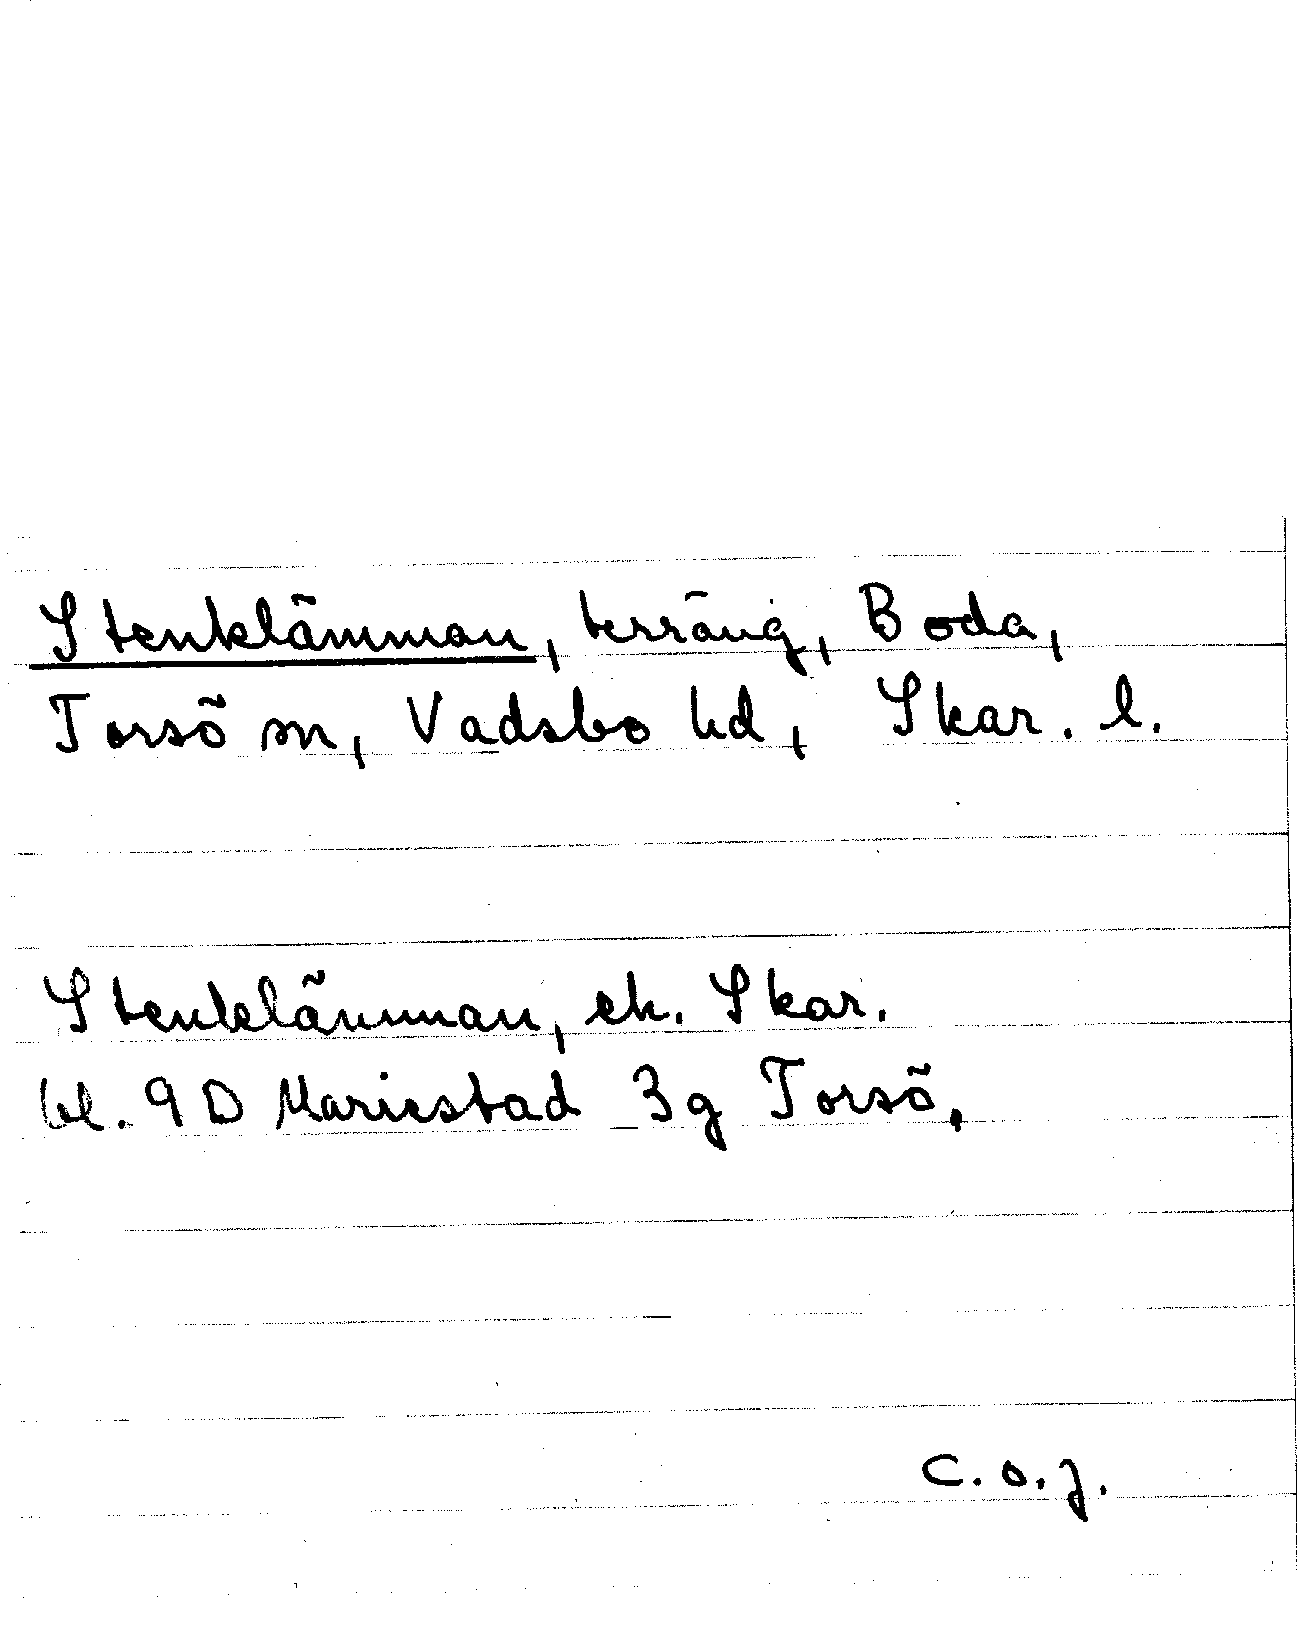 Stenklämman, terräng, Boda,
Torsö sn, Vadsbo hd, Skar. l.
Stenklämman, ek. Skar.
bl. 9 D Mariestad 3g Torsö.
C.O.J.